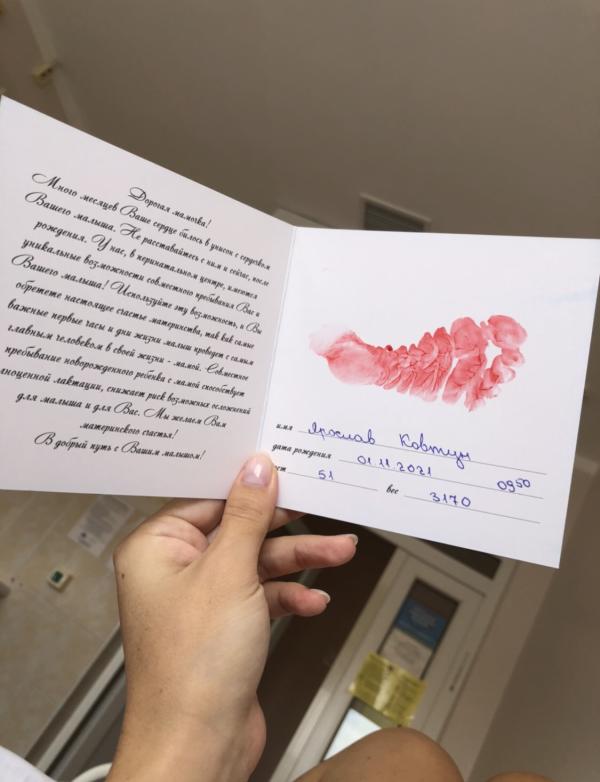 Дорогая мамочка!
Много месяцев Ваше сердце билось в унисон с сердцем
Вашего малыша. Не расставайтесь с ним и сейчас, после
рождения. У нас, в перинатальном центре, имеются
уникальные возможности совместного пребывания Вас и
Вашего малыша! Используйте эту возможность, и Вы
обретете настоящее счастье материнства, так как самые
важные первые часы и дни жизни малыш проведет с самым
главным человеком в своей жизни - мамой. Совместное
пребывание новорожденного ребенка с мамой способствует
лноценной лактации, снижает риск возможных осложнений
для малыша и для Вас. Мы желаем Вам
материнского счастья!
В добрый путь с Вашим малышом!
имя Ярослав Ковтун
дата рождения 01.11.2021 09 50
ост 51 вес 3170